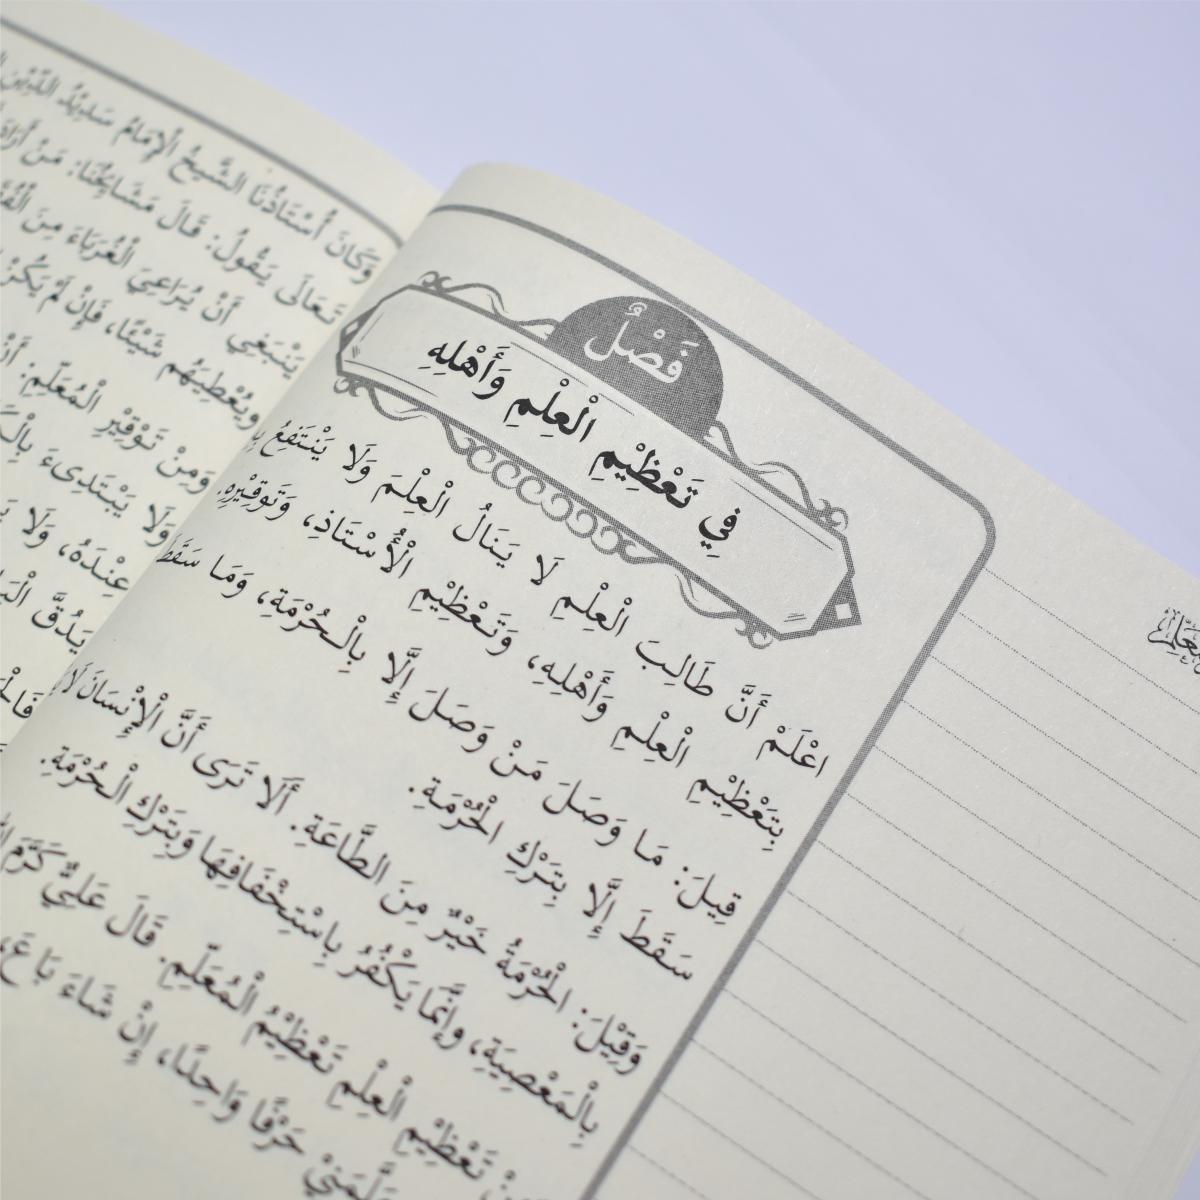 وَكَانَ أُسْتَاذُنَا الشَّيْخُ الْإِمَامُ سَدِيْدُ الدِّيْنِ
تَعَالَى يَقُولُ: قَالَ مَشَايِخُنَا: مَنْ أَرَادَ
يَنْبَغِي أَنْ يُرَاعِيَ الْغُرَبَاءَ مِنَ
وَيُعْطِيَهُم شَيْئًا، فَإِنْ لَمْ يَكُنْ
وَمِنْ تَوْقِيْرِ الْمُعَلِّمِ:
وَلَا يَبْتَدِىءَ
عِنْدَهُ، وَلَا
يَدُقَّ
فَصْلٌ
فِي تَعْظِيْمِ الْعِلْمِ وَأَهْلِهِ
اعْلَمْ أَنَّ طَالِبَ الْعِلْمِ لَا يَنَالُ الْعِلْمَ وَلَا يَنْتَفِعُ
بِتَعْظِيْمِ الْعِلْمِ وَأَهْلِهِ، وَتَعْظِيْمِ الْأُسْتَاذِ، وَتَوْقِيْرِهِ.
قِيلَ: مَا وَصَلَ مَنْ وَصَلَ إِلَّا بِالْحُرْمَةِ، وَمَا سَقَطَ
سَقَطَ إِلَّا بِتَرْكِ الْحُرْمَةِ.
وَقِيْلَ: الْحُرْمَةُ خَيْرٌ مِنَ الطَّاعَةِ. أَلَا تَرَى أَنَّ الْإِنْسَانَ لَا
بِالْمَعْصِيَةِ، وَإِنَّمَا يَكْفُرُ بِاسْتِخْفَافِهَا وَبِتَرْكِ الْحُرْمَةِ.
تَعْظِيْمِ الْعِلْمِ تَعْظِيْمُ الْمُعَلِّمِ. قَالَ عَلِيٌّ كَرَّمَ
حَرْفًا وَاحِدًا، إِنْ شَاءَ بَاعَ،